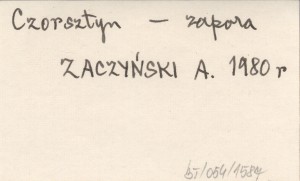 Czorsztyn – zapora
ZACZYŃSKI A. 1980 r
bT/054/1584